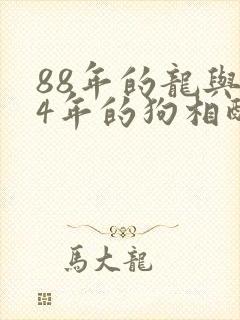 88年的龍與
4年的狗相
馬大龍